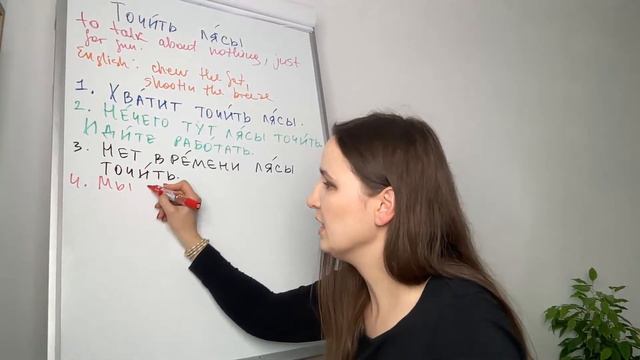 Точи́ть ля́сы
to talk about nothing, just
for fun.
English: chew the fat,
shootin the breeze
1. Хва́тит точи́ть ля́сы.
2. Не́чего тут ля́сы точи́ть.
Иди́те рабо́тать.
3. Нет вре́мени ля́сы
точи́ть.
4. Мы